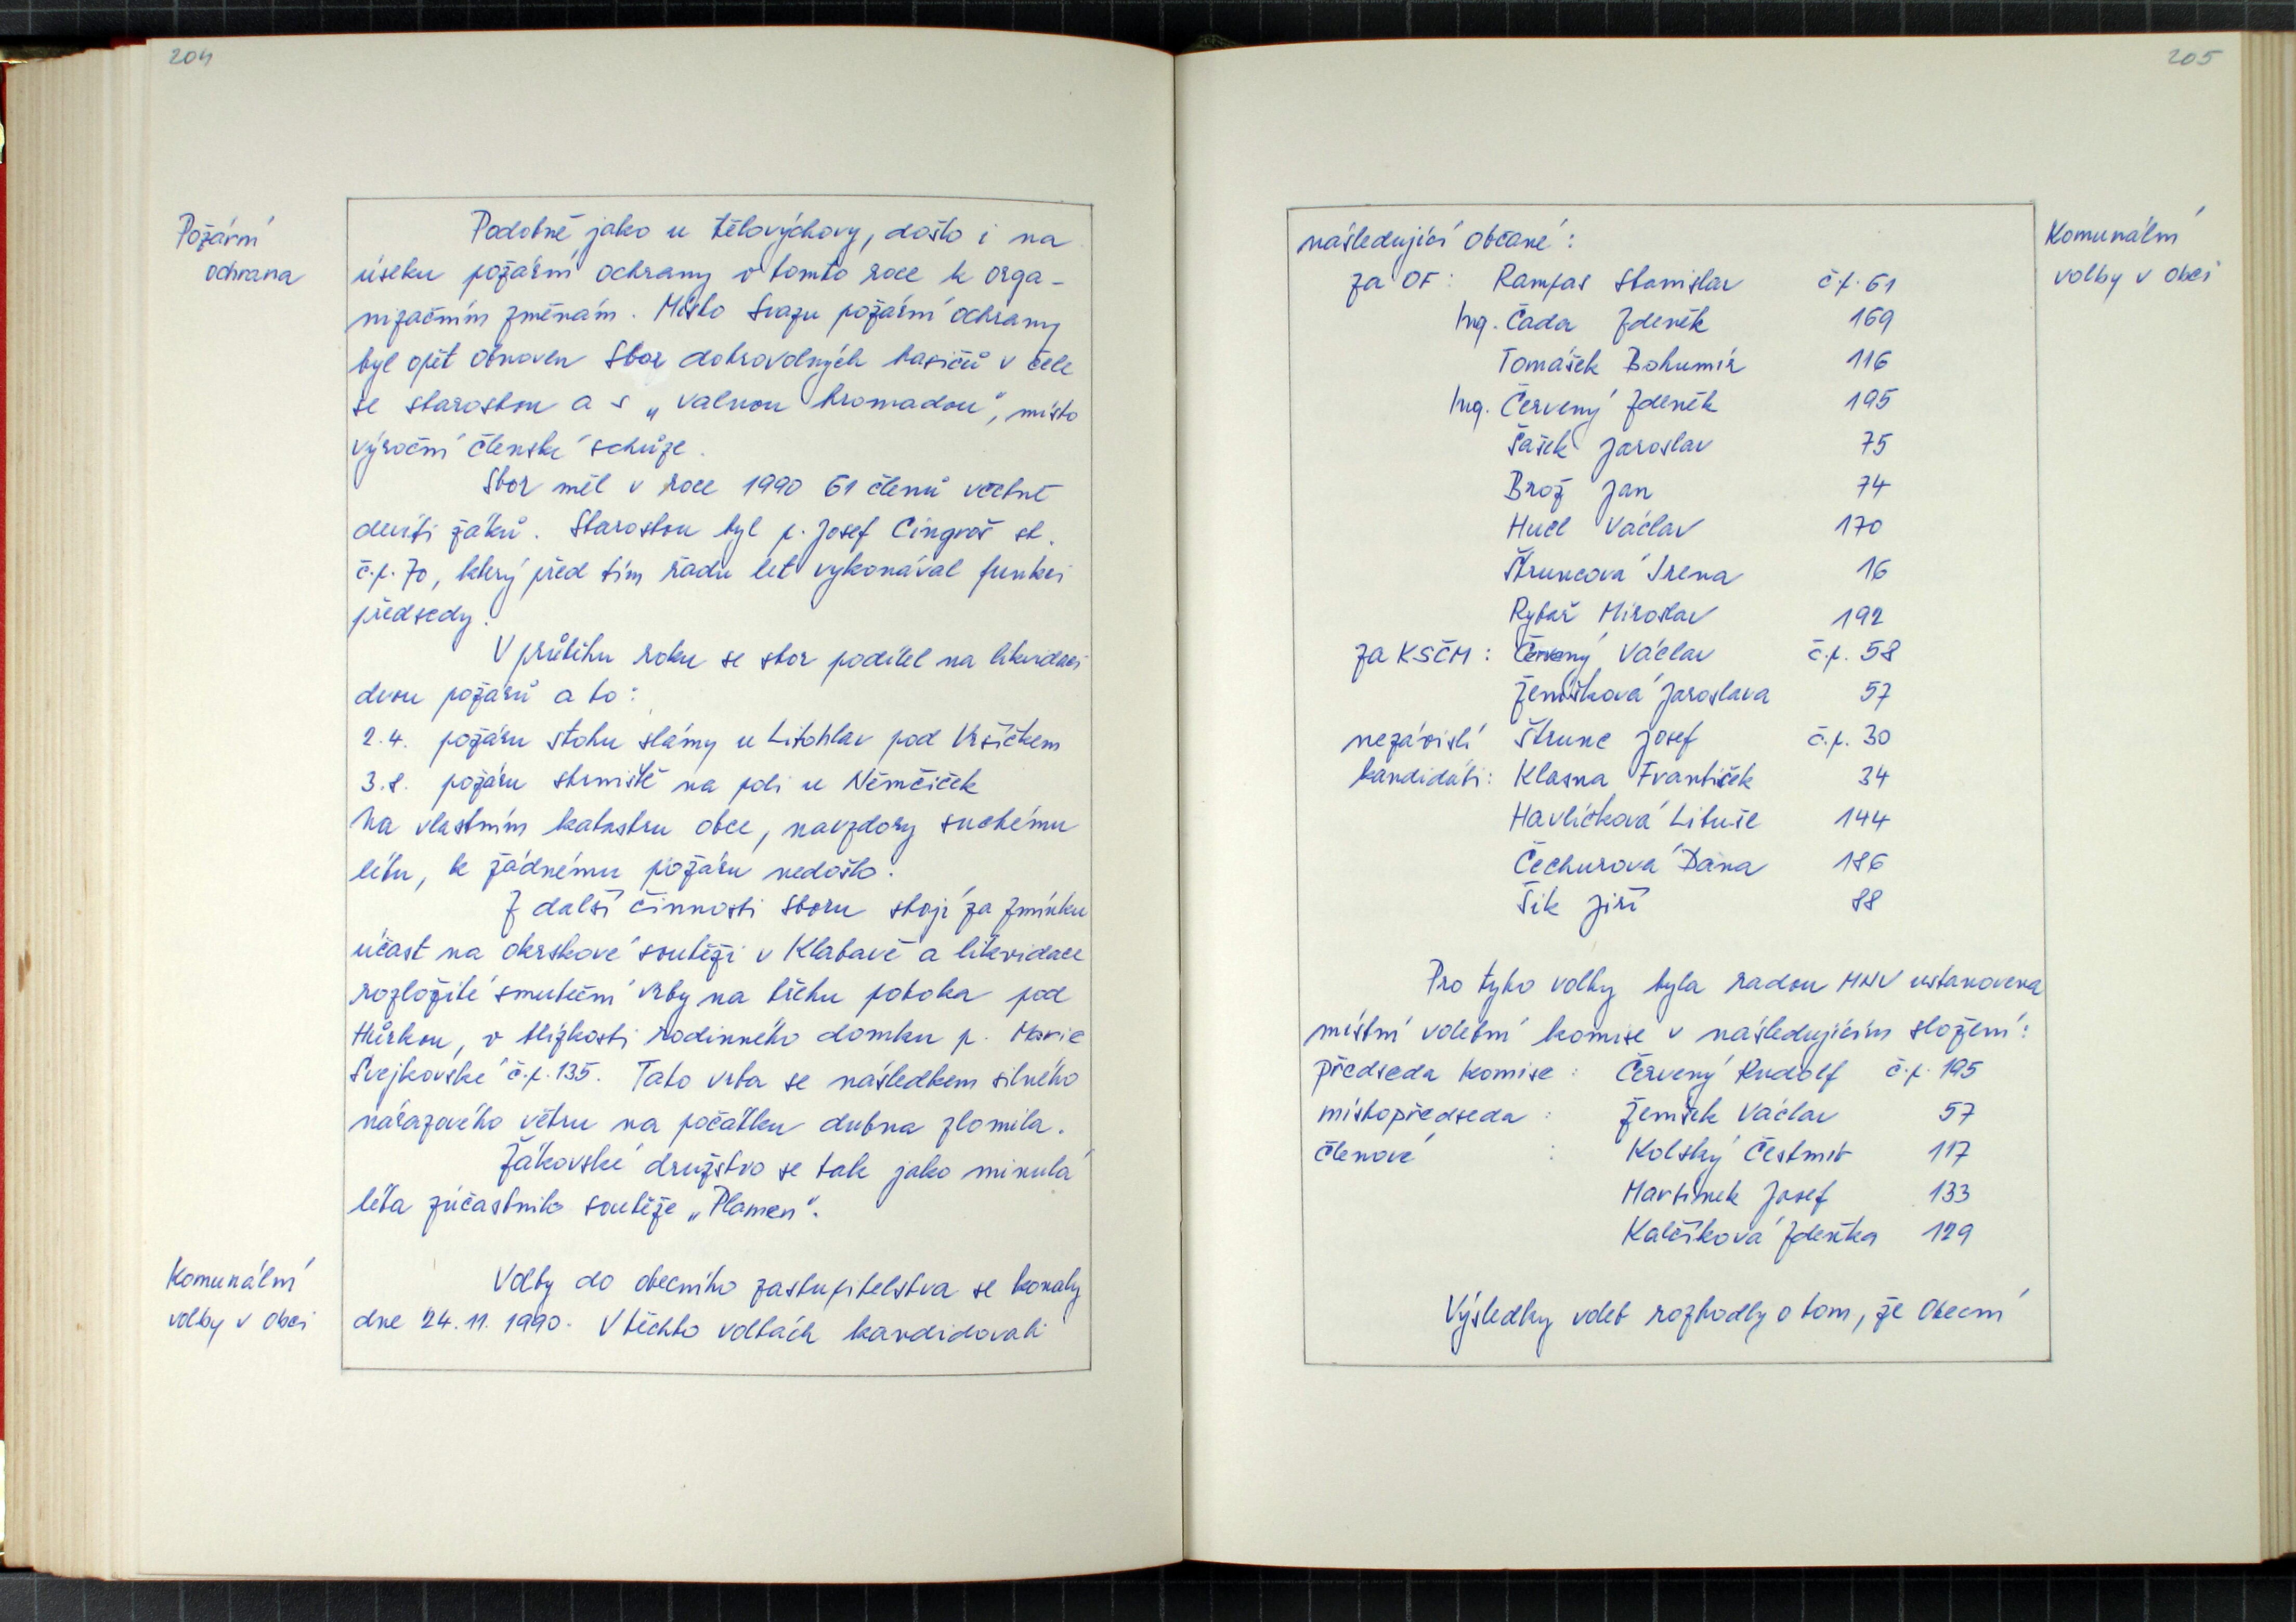 204
Požární
ochrana
Podobně jako u tělovýchovy, došlo i na
úseku požární ochrany v tomto roce k orga-
nizačním změnám. Místo Svazu požární ochrany
byl opět obnoven Sbor dobrovolných hasičů v čele
se starostou a s „valnou hromadou", místo
výroční členské schůze.
Sbor měl v roce 1990 61 členů včetně
devíti žáků. Starostou byl p. Josef Cingroš st.
č.p. 70, který před tím řadu let vykonával funkci
předsedy.
V průběhu roku se sbor podílel na likvidaci
dvou požárů a to:
2.4. požáru stohu slámy u Litohlav pod Vršíčkem
3.8. požáru strniště na poli u Němčiček
Na vlastním katastru obce, navzdory suchému
létu, k žádnému požáru nedošlo.
Z další činnosti sboru stojí za zmínku
účast na okrskové soutěži v Klabavě a likvidace
rozložité smuteční vrby na břehu potoka pod
Hůrkou, v blízkosti rodinného domku p. Marie
Švejkovské č.p. 135. Tato vrba se následkem silného
nárazového větru na počátku dubna zlomila.
Žákovské družstvo se tak jako minulá
léta zúčastnilo soutěže „Plamen".
Komunální
volby v obci
Volby do obecního zastupitelstva se konaly
dne 24.11.1990. V těchto volbách kandidovali
205
Komunální
volby v obci
následující občané:
za OF: Rampas Stanislav č.p. 61
Ing. Čada Zdeněk 169
Tomášek Bohumír 116
Ing. Červený Zdeněk 195
Šašek Jaroslav 75
Brož Jan 74
Hucl Václav 170
Štruncová Irena 16
Rybář Miroslav 192
za KSČM: Červený Václav č.p. 58
Žemíšková Jaroslava 57
nezávislí Štrunc Josef č.p. 30
kandidáti: Klasna František 34
Havlíčková Libuše 144
Čechurová Dana 186
Šik Jiří 88
Pro tyto volby byla radou MNV ustanovena
místní volební komise v následujícím složení:
předseda komise: Červený Rudolf č.p. 195
místopředseda: Žemíšek Václav 57
členové: Kolský Čestmír 117
Martínek Josef 133
Kalčíková Zdeňka 129
Výsledky voleb rozhodly o tom, že Obecní